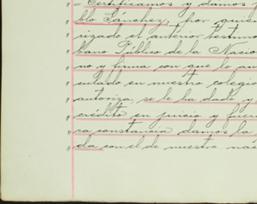 " Certificamos y damos
" blo Sánchez, por quien
" rizado el anterior testim
" bano Público de la Nacio
" no y firma con que lo au
" entado en nuestro colegio
" autoriza se le ha dado y
" crédito en juicio y fuer
" ra constancia damos la
" da con el de nuestro